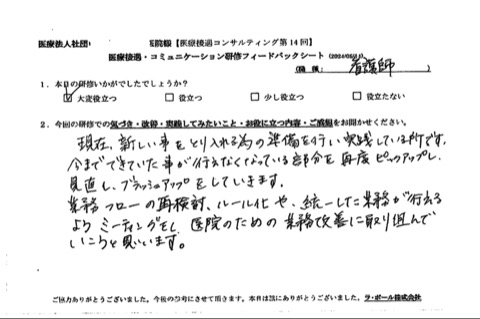 医療法人社団 医院様【医療接遇コンサルティング第14回】
医療接遇・コミュニケーション研修フィードバックシート (2024/05/11)
(職種: 看護師 )
1.本日の研修いかがでしたでしょうか?
☑大変役立つ □役立つ □少し役立つ □役立たない
2.今回の研修での気づき・改善・実践してみたいこと・お役に立つ内容・ご感想をお聞かせください。
現在、新しい事をとり入れる為の準備を行い実践している所です。
今までできていた事が行えなくなっている部分を再度ピックアップし、
見直し、ブラッシュアップをしていきます。
業務フローの再検討、ルール化や、統一した業務が行える
ようミーティングをし、医院のための業務改善に取り組んで
いこうと思います。
ご協力ありがとうございました。今後の参考にさせて頂きます。本日は誠にありがとうございました。 ラ・ポール株式会社